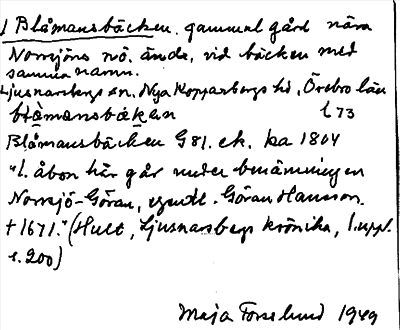 1 Blåmansbäcken. gammal gård nära
Norrsjöns nö. ände, vid bäcken med
samma namn.
Ljusnarsbergs sn. Nya Kopparbergs hd, Örebro län
blåmansbäken l 73
Blåmansbäcken G 81. ek. ka 1804
"1. åbon här går under benämningen
Norrsjö-Göran, egentl. Göran Hansson.
† 1671." (Hult, Ljusnarsbergs krönika, 1. uppl.
s. 200)
Maja Forslund 1949